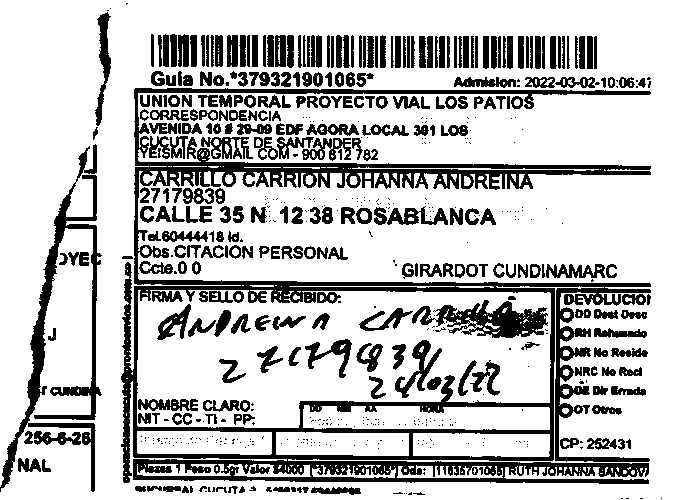 Guia No.*379321901065*
Admision: 2022-03-02-10:06:47
UNION TEMPORAL PROYECTO VIAL LOS PATIOS
CORRESPONDENCIA
AVENIDA 10 # 29-09 EDF AGORA LOCAL 301 LOS
CUCUTA NORTE DE SANTANDER
YEISMIR@GMAIL COM - 900 812 782
CARRILLO CARRION JOHANNA ANDREINA
27179839
CALLE 35 N 12 38 ROSABLANCA
Tel.60444418 Id.
Obs.CITACION PERSONAL
Ccte.0 0
GIRARDOT CUNDINAMARC
OYEC
J
T CUNDINA
256-6-26
NAL
FIRMA Y SELLO DE RECIBIDO:
ANDREINA CARRILLO
27179839
24/03/22
NOMBRE CLARO:
NIT - CC - TI - PP:
DD MM AA HORA
DEVOLUCION
DD Dest Desc
RH Rehusado
NR No Reside
NRC No Recl
DE Dir Errada
OT Otros
CP: 252431
Piezas 1 Peso 0.5gr Valor $4000 [*379321901065*] Ods: [11635701065] RUTH JOHANNA SANDOVA